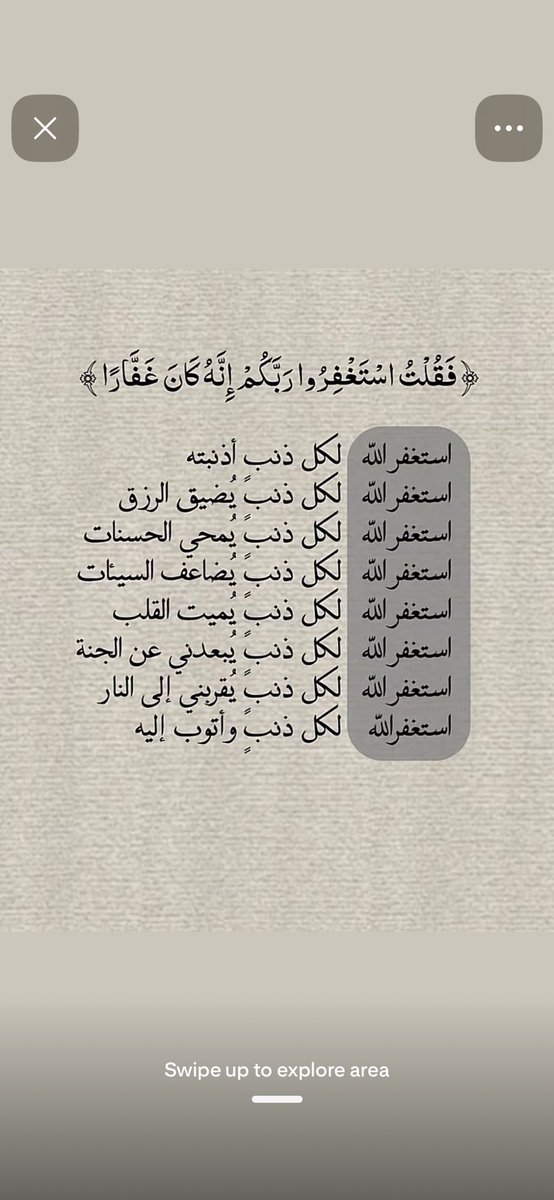 ﴿فَقُلْتُ اسْتَغْفِرُوا رَبَّكُمْ إِنَّهُ كَانَ غَفَّارًا﴾
استغفر الله لكل ذنب أذنبته
استغفر الله لكل ذنبٍ يُضيق الرزق
استغفر الله لكل ذنبٍ يُمحي الحسنات
استغفر الله لكل ذنبٍ يُضاعف السيئات
استغفر الله لكل ذنبٍ يُميت القلب
استغفر الله لكل ذنبٍ يُبعدني عن الجنة
استغفر الله لكل ذنبٍ يُقربني إلى النار
استغفرالله لكل ذنبٍ وأتوب إليه
Swipe up to explore area